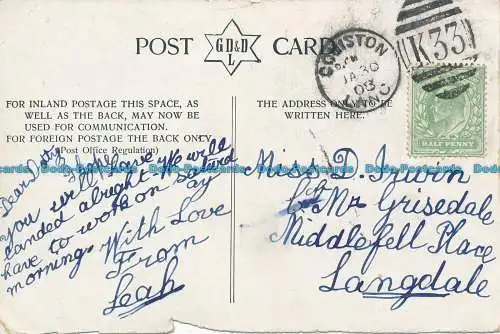 POST CARD
GD&D
L
CONISTON
JA 30
03
K33
HALF PENNY
FOR INLAND POSTAGE THIS SPACE, AS
WELL AS THE BACK, MAY NOW BE
USED FOR COMMUNICATION.
FOR FOREIGN POSTAGE THE BACK ONLY
(Post Office Regulation)
THE ADDRESS ONLY TO BE
WRITTEN HERE.
Dear
I hope
you will have
landed alright We will
have to work on Saturd
ay
morning. With Love
From
Leah
Miss D.
c/o Mr Grisedale
Middlefell Place
Langdale